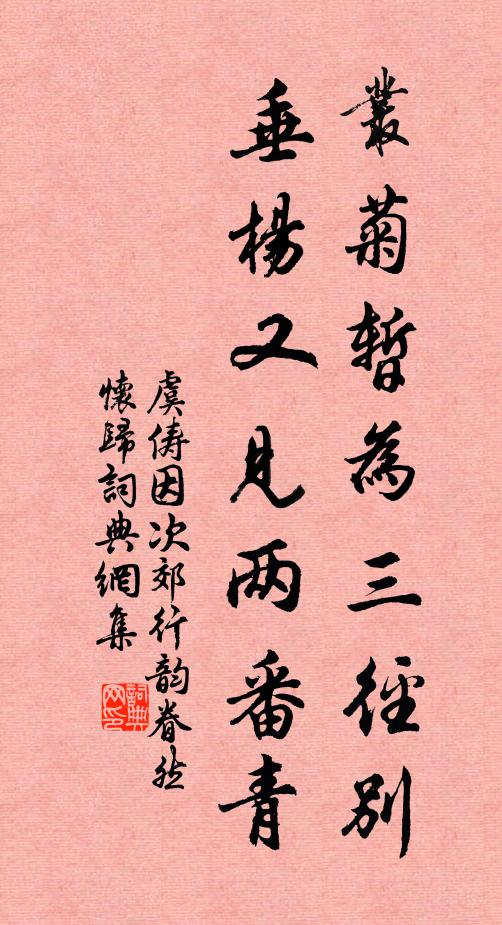 叢菊暫為三徑別
垂楊又見两番青
虞儔因次郊行韵眷然
懷歸詞典網集
詞典网印